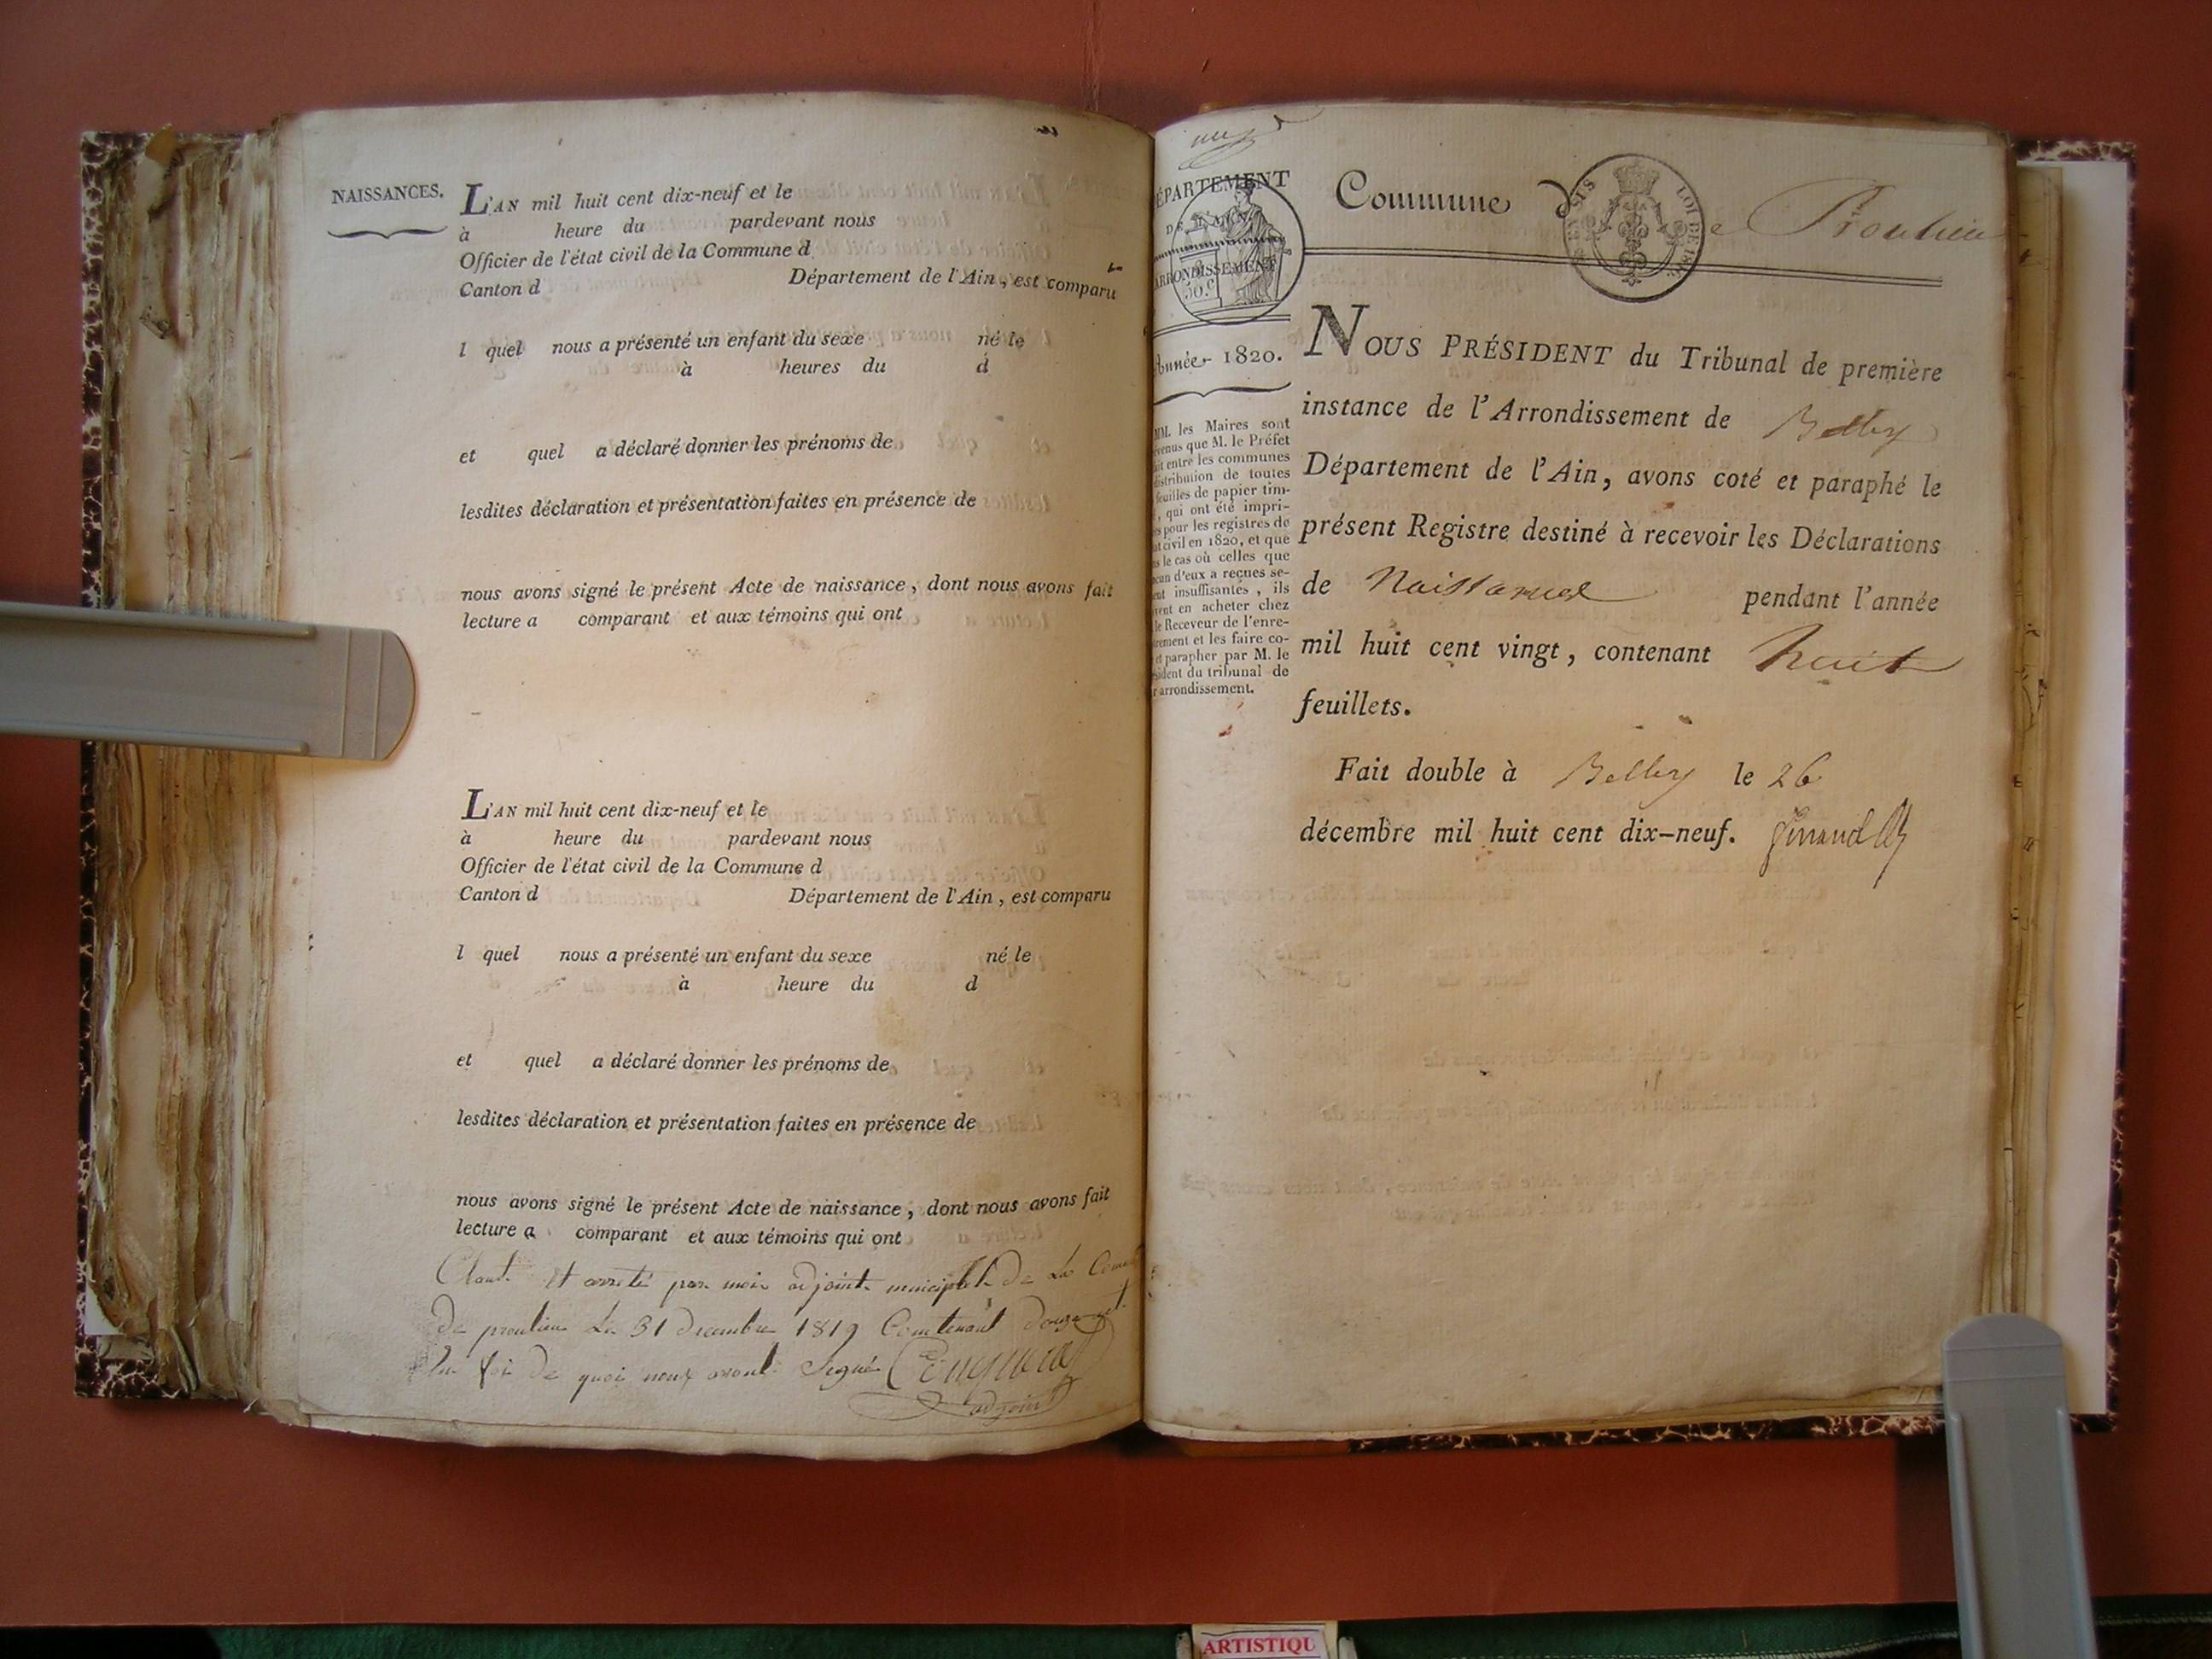 NAISSANCES.
L'AN mil huit cent dix-neuf et le
à heure du pardevant nous
Officier de l'état civil de la Commune d
Canton d Département de l'Ain, est comparu
l quel nous a présenté un enfant du sexe né le
à heures du d
et quel a déclaré donner les prénoms de
lesdites déclaration et présentation faites en présence de
nous avons signé le présent Acte de naissance, dont nous avons fait
lecture a comparant et aux témoins qui ont
L'AN mil huit cent dix-neuf et le
à heure du pardevant nous
Officier de l'état civil de la Commune d
Canton d Département de l'Ain, est comparu
l quel nous a présenté un enfant du sexe né le
à heure du d
et quel a déclaré donner les prénoms de
lesdites déclaration et présentation faites en présence de
nous avons signé le présent Acte de naissance, dont nous avons fait
lecture a comparant et aux témoins qui ont
et arreté par moi adjoint de La
De proulieu Le 31 decembre 1819 Contenant
foi De quoi nous avons Signé
adjoint
ÉPARTEMENT
DE L'AIN
ARRONDISSEMENT
50.c
Année 1820.
MM. les Maires sont
venus que M. le Préfet
it entre les communes
distribution de toutes
feuilles de papier tim-
, qui ont été impri-
s pour les registres de
at civil en 1820, et que
s le cas où celles que
cun d'eux a reçues se-
ent insuffisantes, ils
vent en acheter chez
le Receveur de l'enre-
rement et les faire co-
et parapher par M. le
sident du tribunal de
r arrondissement.
Commune de Proulieu
NOUS PRÉSIDENT du Tribunal de première
instance de l'Arrondissement de Belley
Département de l'Ain, avons coté et paraphé le
présent Registre destiné à recevoir les Déclarations
de Naissances pendant l'année
mil huit cent vingt, contenant huit
feuillets.
Fait double à Belley le 26
décembre mil huit cent dix-neuf.
ARTISTIQU